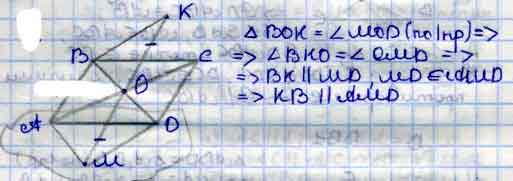 K
B
C
O
A
D
M
Δ BOK = ∠ MOD (по I пр) =>
=> ∠ BKO = ∠ OMD =>
=> BK || MD, MD ∈ AMD
=> KB || AMD